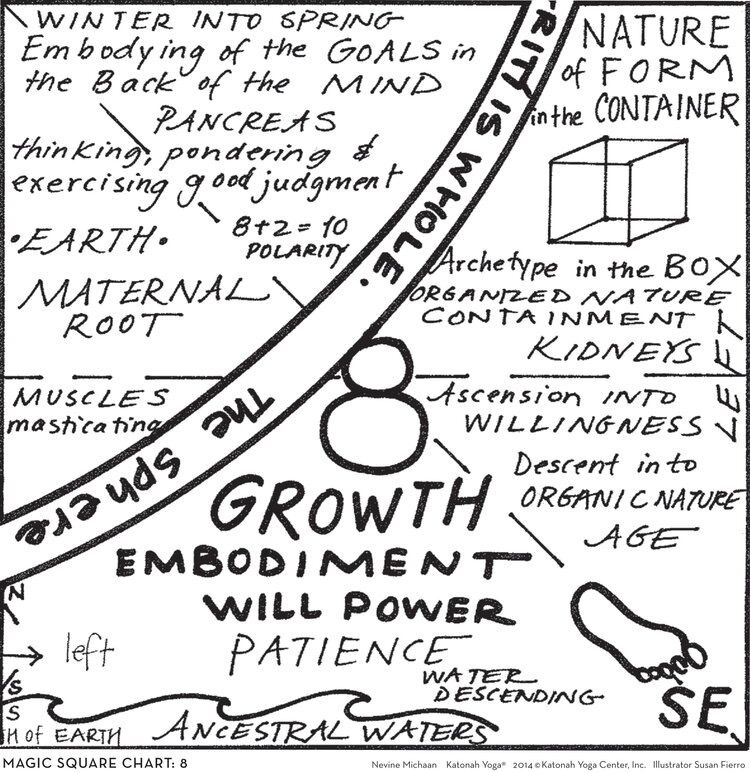 WINTER INTO SPRING
Embodying of the GOALS in
the Back of the MIND
PANCREAS
thinking, pondering &
exercising good judgment
8+2=10
POLARITY
•EARTH•
MATERNAL
ROOT
MUSCLES
masticating
The Sphere
RITY IS WHOLE.
NATURE
of FORM
in the CONTAINER
Archetype in the BOX
ORGANIZED NATURE
CONTAINMENT
KIDNEYS
LEFT
Ascension INTO
WILLINGNESS
Descent into
ORGANIC NATURE
AGE
8
GROWTH
EMBODIMENT
WILL POWER
PATIENCE
WATER
DESCENDING
N
left
S
S
H of EARTH
ANCESTRAL WATERS
SE
MAGIC SQUARE CHART: 8
Nevine Michaan Katonah Yoga® 2014 © Katonah Yoga Center, Inc. Illustrator Susan Fierro